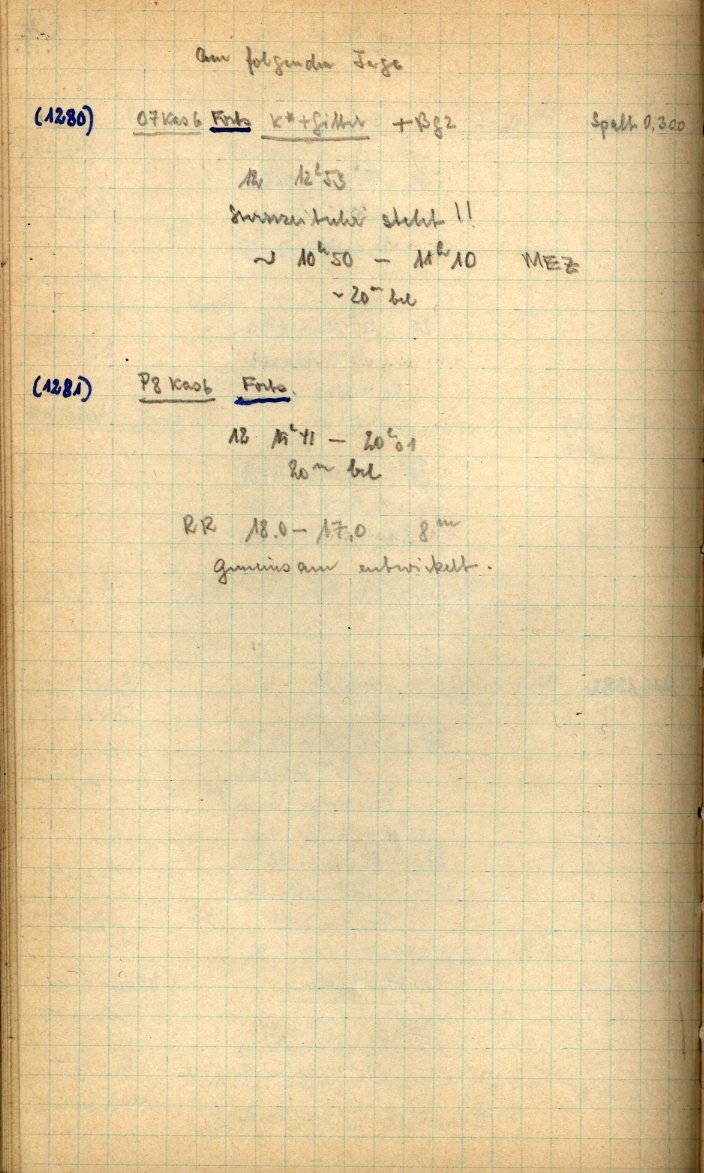 Am folgenden Tage
(1280) O7 Kasb Forts K*+Gitter +BG2 Spalt 0,300
12 12h53
Sternzeituhr steht!!
~ 10h50 — 11h10 MEZ
~20m bel
(1281) P8 Kasb Forts.
12 — 20h01
20m bel
RR 18.0 — 17,0 8m
gemeinsam entwickelt.